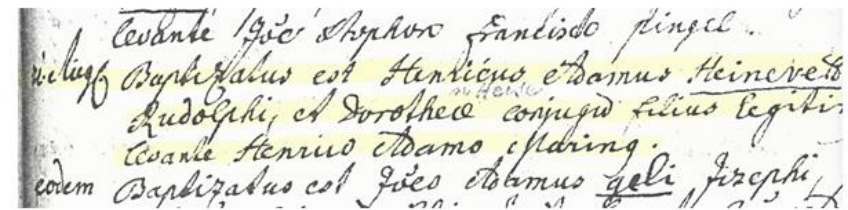 levante Joe̅ Stophoro Francisco pingel.
Baptizatus est Henricus Adamus Heinevett
Rudolphi, et Dorotheæ conjugū filius legiti
levante Henrico Adamo Maring.
eodem Baptizatus est Joe̅s Adamus geli Jozephi,